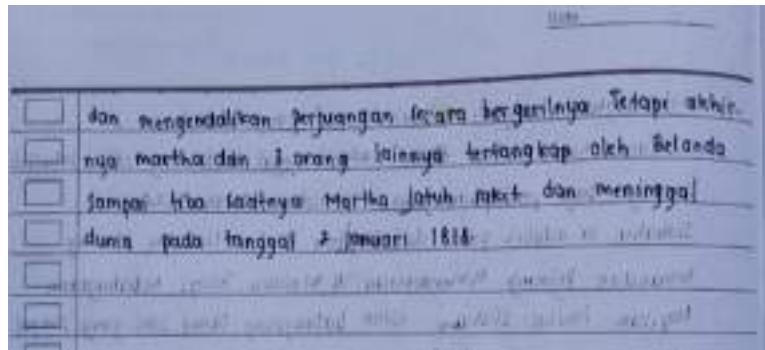 Date
dan mengendalikan perjuangan secara bergerilnya. Tetapi akhir-
nya martha dan orang lainnya tertangkap oleh Belanda
sampai tiba saatnya Martha jatuh sakit dan meninggal
dunia pada tanggal 2 januari 1818.